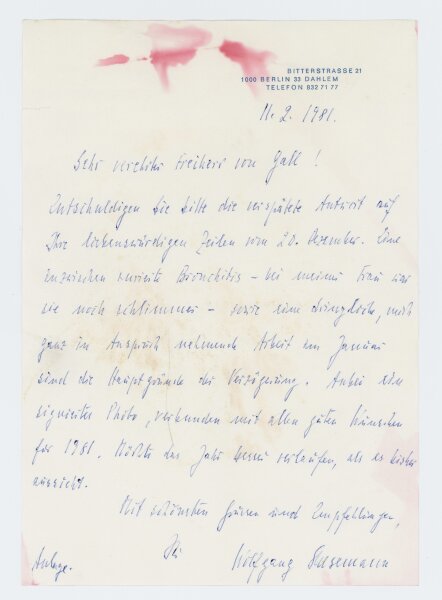 BITTERSTRASSE 21
1000 BERLIN 33 DAHLEM
TELEFON 832 71 77
11. 2. 1981.
Sehr verehrter Freiherr von Gall!
Entschuldigen Sie bitte die verspätete Antwort auf
Ihre liebenswürdigen Zeilen vom 20. Dezember. Eine
inzwischen kurierte Bronchitis – bei meiner Frau war
sie noch schlimmer – sowie eine dringliche, mich
ganz in Anspruch nehmende Arbeit im Januar
sind die Hauptgründe der Verzögerung. Anbei ein
signiertes Photo, verbunden mit allen guten Wünschen
für 1981. Möchte das Jahr besser verlaufen, als es bisher
aussieht.
Mit schönsten Grüssen und Empfehlungen,
Ihr Wolfgang
Anlage.